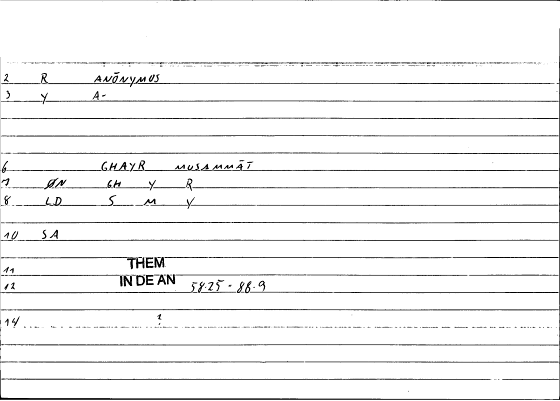 2 R ANŌNYMUS
3 Y A-
6 GHAYR MUSAMMĀT
7 ØN GH Y R
8 LD S M Y
10 SA
11 THEM
12 IN DE AN 58.25 - 88.9
14 ?